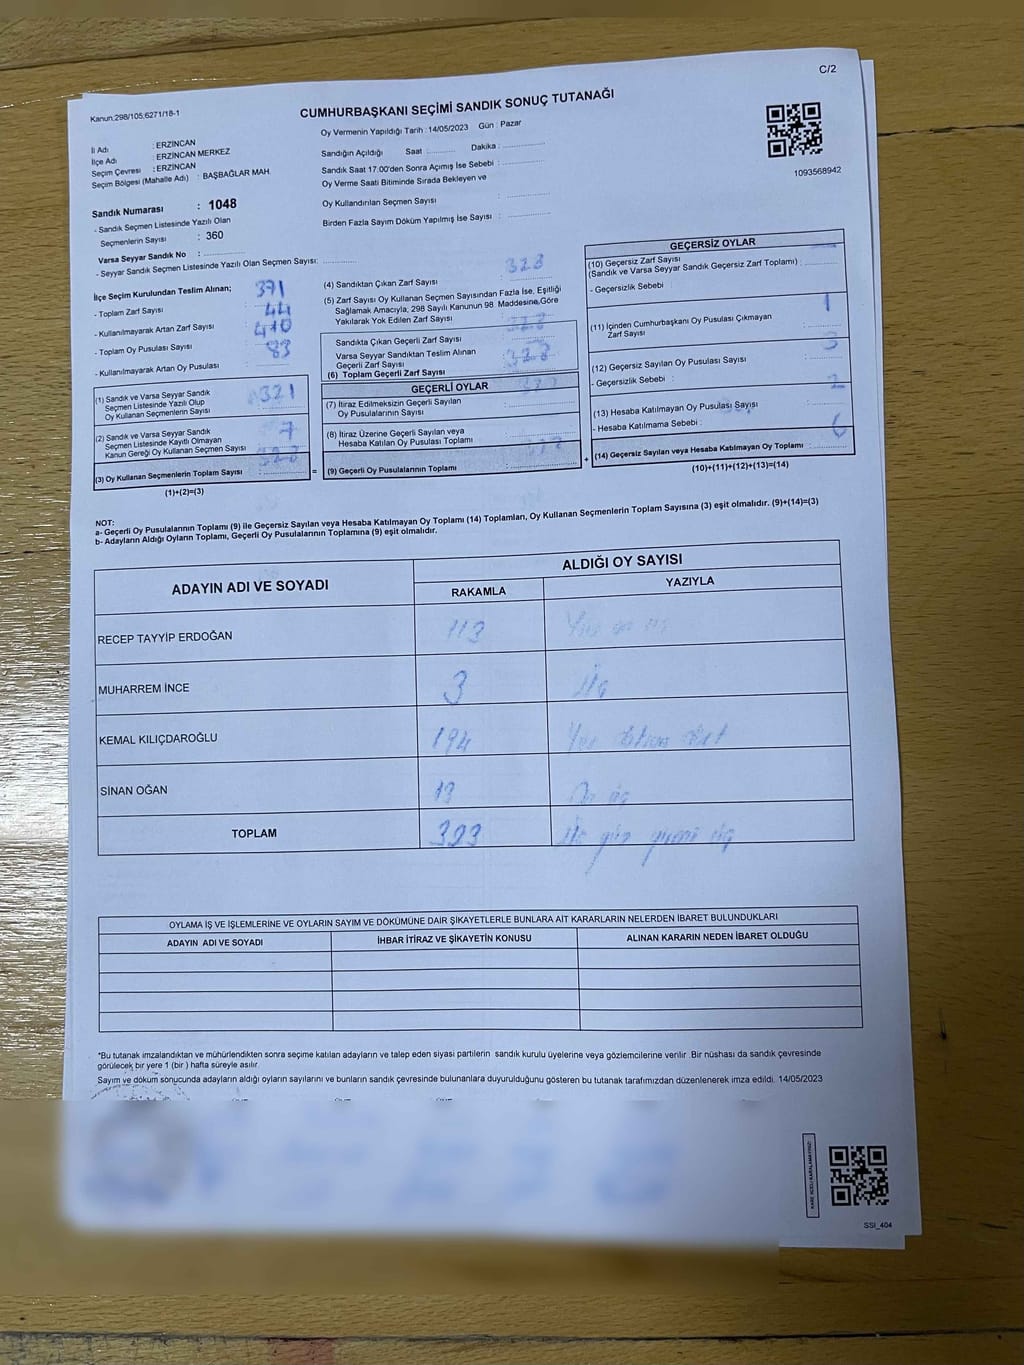 C/2
Kanun;298/105,6271/18-1
CUMHURBAŞKANI SEÇİMİ SANDIK SONUÇ TUTANAĞI
İl Adı : ERZİNCAN
İlçe Adı : ERZİNCAN MERKEZ
Seçim Çevresi : ERZİNCAN
Seçim Bölgesi (Mahalle Adı) : BAŞBAĞLAR MAH.
Oy Vermenin Yapıldığı Tarih : 14/05/2023 Gün : Pazar
Sandığın Açıldığı Saat : Dakika :
Sandık Saat 17.00'den Sonra Açımış İse Sebebi :
Oy Verme Saati Bitiminde Sırada Bekleyen ve
Oy Kullandırılan Seçmen Sayısı :
Birden Fazla Sayım Döküm Yapılmış İse Sayısı :
1093568942
Sandık Numarası : 1048
- Sandık Seçmen Listesinde Yazılı Olan
Seçmenlerin Sayısı : 360
Varsa Seyyar Sandık No :
- Seyyar Sandık Seçmen Listesinde Yazılı Olan Seçmen Sayısı:
İlçe Seçim Kurulundan Teslim Alınan;
- Toplam Zarf Sayısı : 371
- Kullanılmayarak Artan Zarf Sayısı : 44
- Toplam Oy Pusulası Sayısı : 410
- Kullanılmayarak Artan Oy Pusulası : 83
(1) Sandık ve Varsa Seyyar Sandık
Seçmen Listesinde Yazılı Olup
Oy Kullanan Seçmenlerin Sayısı : 321
(2) Sandık ve Varsa Seyyar Sandık
Seçmen Listesinde Kayıtlı Olmayan
Kanun Gereği Oy Kullanan Seçmen Sayısı : 7
(3) Oy Kullanan Seçmenlerin Toplam Sayısı : 328
(1)+(2)=(3)
=
(4) Sandıktan Çıkan Zarf Sayısı : 328
(5) Zarf Sayısı Oy Kullanan Seçmen Sayısından Fazla İse, Eşitliği
Sağlamak Amacıyla, 298 Sayılı Kanunun 98. Maddesine Göre
Yakılarak Yok Edilen Zarf Sayısı
Sandıkta Çıkan Geçerli Zarf Sayısı : 328
Varsa Seyyar Sandıktan Teslim Alınan
Geçerli Zarf Sayısı
(6) Toplam Geçerli Zarf Sayısı : 328
GEÇERLİ OYLAR
(7) İtiraz Edilmeksizin Geçerli Sayılan
Oy Pusulalarının Sayısı :
(8) İtiraz Üzerine Geçerli Sayılan veya
Hesaba Katılan Oy Pusulası Toplamı :
(9) Geçerli Oy Pusulalarının Toplamı :
+
GEÇERSİZ OYLAR
(10) Geçersiz Zarf Sayısı
(Sandık ve Varsa Seyyar Sandık Geçersiz Zarf Toplamı) :
- Geçersizlik Sebebi :
(11) İçinden Cumhurbaşkanı Oy Pusulası Çıkmayan
Zarf Sayısı : 1
(12) Geçersiz Sayılan Oy Pusulası Sayısı : 3
- Geçersizlik Sebebi :
(13) Hesaba Katılmayan Oy Pusulası Sayısı : 2
- Hesaba Katılmama Sebebi :
(14) Geçersiz Sayılan veya Hesaba Katılmayan Oy Toplamı : 6
(10)+(11)+(12)+(13)=(14)
NOT:
a- Geçerli Oy Pusulalarının Toplamı (9) ile Geçersiz Sayılan veya Hesaba Katılmayan Oy Toplamı (14) Toplamları, Oy Kullanan Seçmenlerin Toplam Sayısına (3) eşit olmalıdır. (9)+(14)=(3)
b- Adayların Aldığı Oyların Toplamı, Geçerli Oy Pusulalarının Toplamına (9) eşit olmalıdır.
ADAYIN ADI VE SOYADI ALDIĞI OY SAYISI
RAKAMLA YAZIYLA
RECEP TAYYİP ERDOĞAN 113 Yüz on üç
MUHARREM İNCE 3 Üç
KEMAL KILIÇDAROĞLU 194 Yüz Doksan Dört
SİNAN OĞAN 13 On üç
TOPLAM 323 Üç yüz yirmi üç
OYLAMA İŞ VE İŞLEMLERİNE VE OYLARIN SAYIM VE DÖKÜMÜNE DAİR ŞİKAYETLERLE BUNLARA AİT KARARLARIN NELERDEN İBARET BULUNDUKLARI
ADAYIN ADI VE SOYADI İHBAR İTİRAZ VE ŞİKAYETİN KONUSU ALINAN KARARIN NEDEN İBARET OLDUĞU
*Bu tutanak imzalandıktan ve mühürlendikten sonra seçime katılan adayların ve talep eden siyasi partilerin sandık kurulu üyelerine veya gözlemcilerine verilir .Bir nüshası da sandık çevresinde
görülecek bir yere 1 (bir ) hafta süreyle asılır.
Sayım ve döküm sonucunda adayların aldığı oyların sayılarını ve bunların sandık çevresinde bulunanlara duyurulduğunu gösteren bu tutanak tarafımızdan düzenlenerek imza edildi. 14/05/2023
KARE KODU KARALAMAYINIZ!
SSI_404